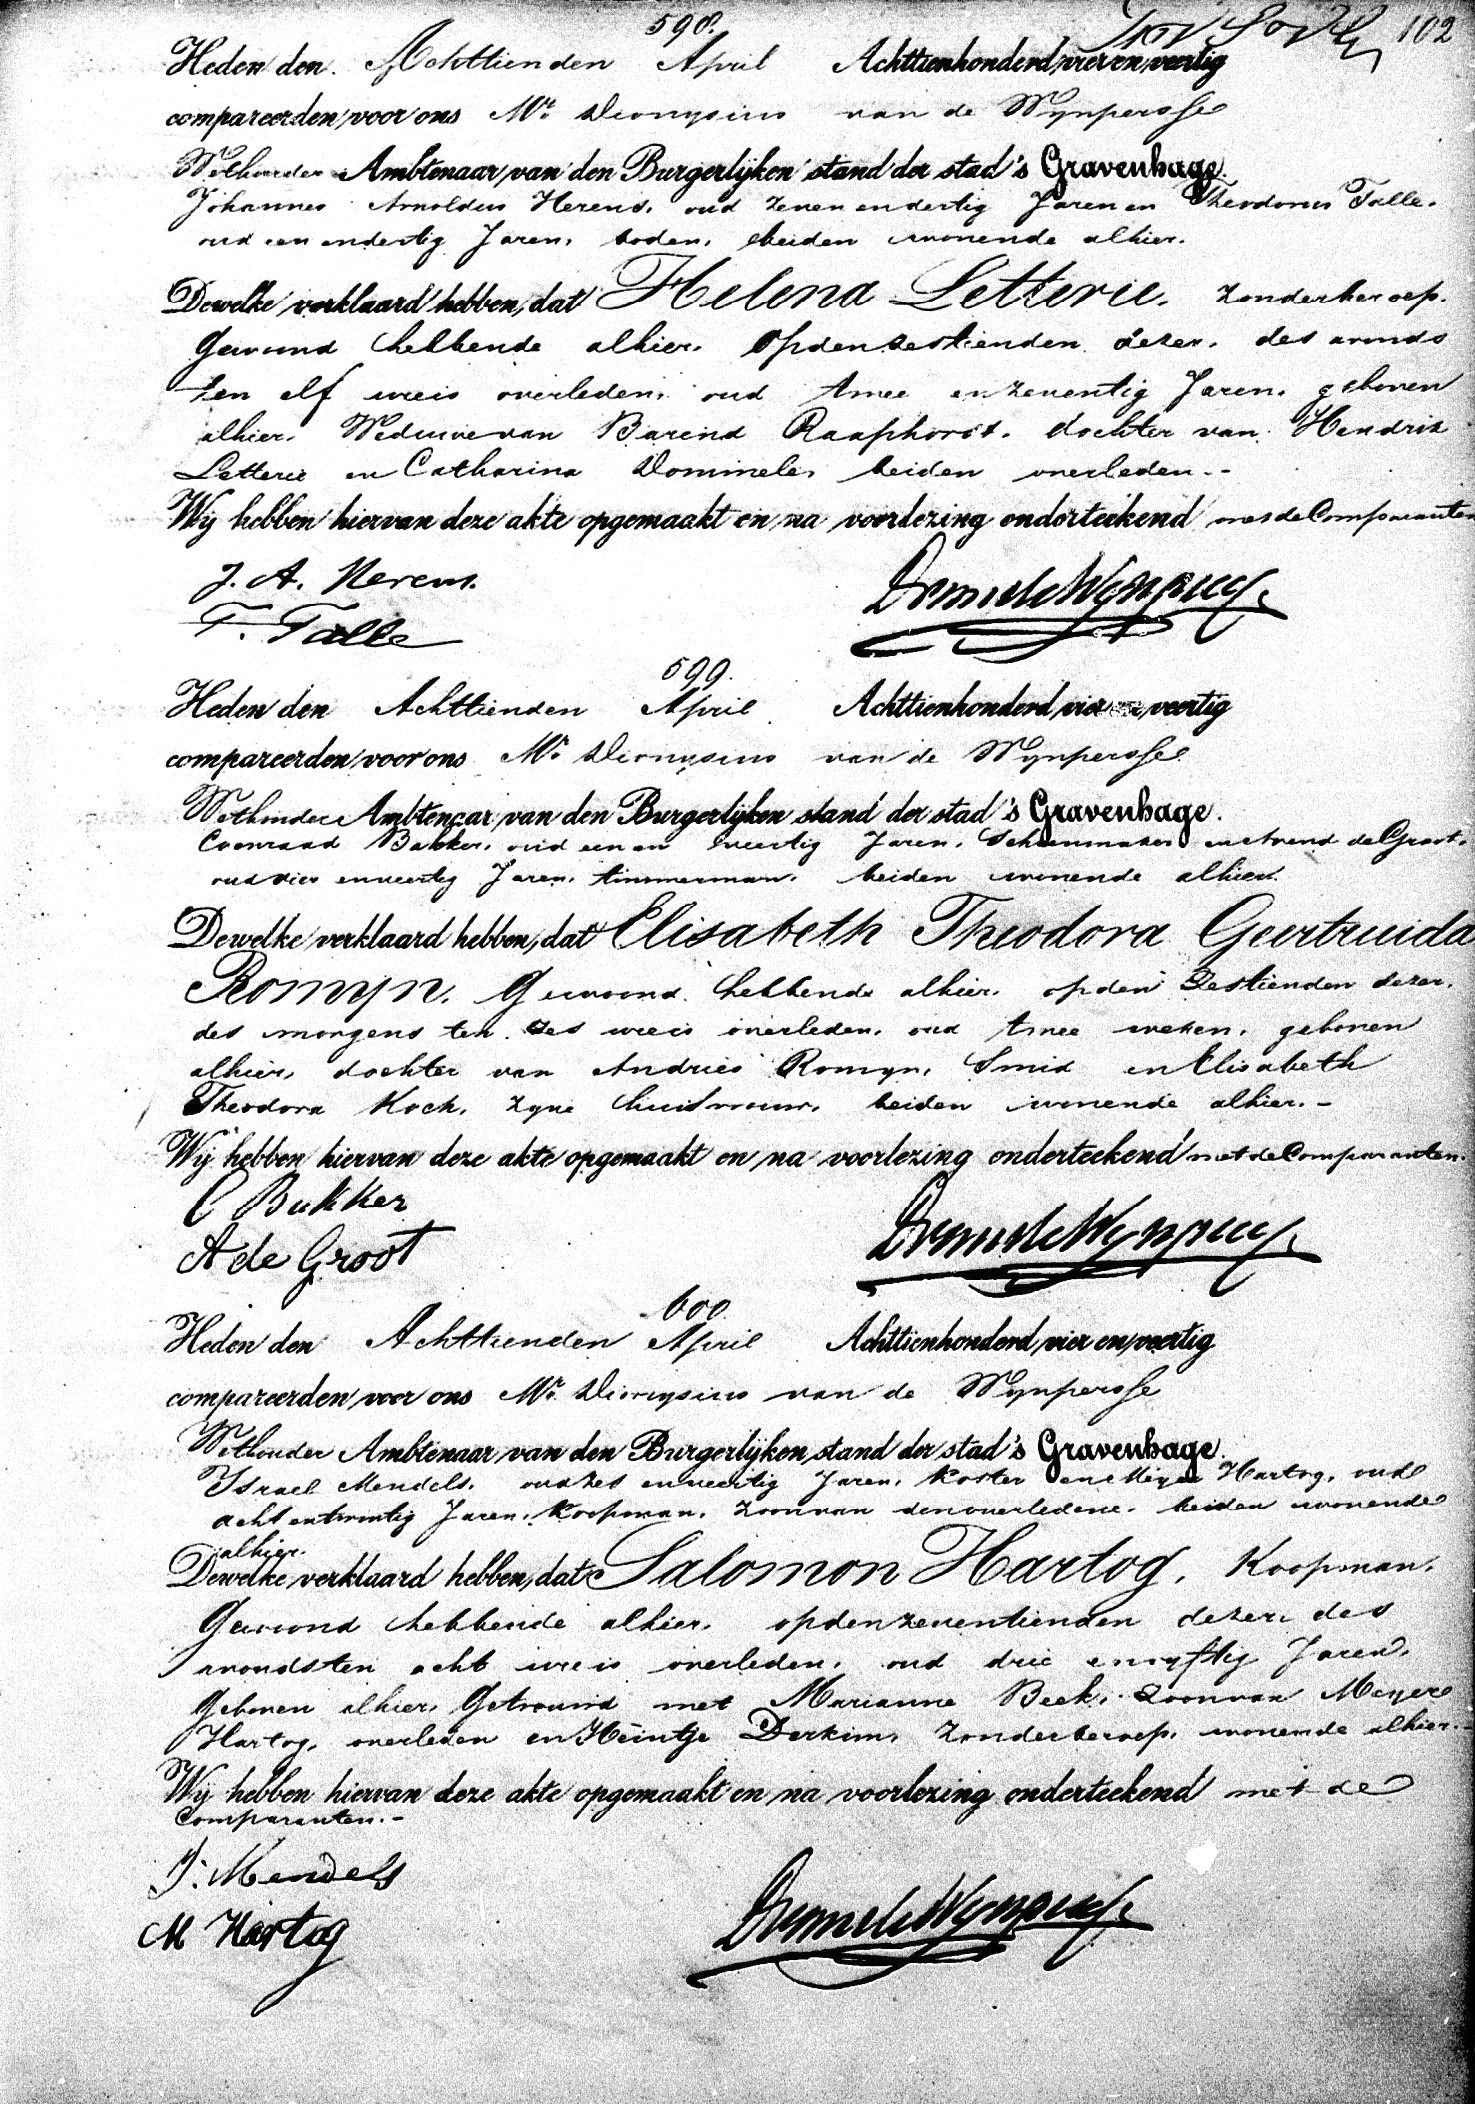 102
598.
Heden den Achttienden April Achttienhonderd vier en veertig
compareerden voor ons Mr. Dionysius van de Wynpersse
Wethouder Ambtenaar van den Burgerlijken stand der stad 's Gravenhage.
Johannes Arnoldus Herens, oud zeven en dertig Jaren en Theodorus Talle.
oud een en dertig Jaren, boden, beiden wonende alhier.
Dewelke verklaard hebben, dat Helena Letterie. zonder beroep.
Gewoond hebbende alhier. op den zestienden dezer. des avonds
ten elf ure is overleden, oud twee en zeventig Jaren, geboren
alhier. Weduwe van Barend Raaphorst. dochter van Hendrik
Letterie en Catharina Dommele, beiden overleden.-
Wij hebben hiervan deze akte opgemaakt en na voorlezing onderteekend met de Comparanten
J. A. Herens.
T. Talle
599.
Heden den Achttienden April Achttienhonderd vier en veertig
compareerden voor ons Mr. Dionysius van de Wynpersse
Wethouder Ambtenaar van den Burgerlijken stand der stad 's Gravenhage.
Coenraad Bakker, oud een en veertig Jaren, Schoenmaker en Arend de Groot.
oud vier en veertig Jaren, timmerman, beiden wonende alhier.
Dewelke verklaard hebben, dat Elisabeth Theodora Geertruida
Romyn. Gewoond hebbende alhier. op den Zestienden dezer.
des morgens ten zes ure is overleden, oud twee weken, geboren
alhier, dochter van Andries Romyn, Smid en Elisabeth
Theodora Koch, zyne huisvrouw, beiden wonende alhier.-
Wij hebben hiervan deze akte opgemaakt en na voorlezing onderteekend met de Comparanten.
C Bakker
A de Groot
600.
Heden den Achttienden April Achttienhonderd vier en veertig
compareerden voor ons Mr. Dionysius van de Wynpersse
Wethouder Ambtenaar van den Burgerlijken stand der stad 's Gravenhage.
Israel Mendels. oud zes en veertig Jaren, Koster en Meyer Hartog, oud
acht en twintig Jaren, Koopman, Zoon van den overledene. beiden wonende
alhier.
Dewelke verklaard hebben, dat Salomon Hartog, Koopman,
Gewoond hebbende alhier. op den zeventienden dezer des
avonds ten acht ure is overleden, oud drie en vyftig Jaren,
Geboren alhier, Getrouwd met Marianne Beek, Zoon van Meyer
Hartog, overleden en Heintje Derkim, zonder beroep, wonende alhier.-
Wij hebben hiervan deze akte opgemaakt en na voorlezing onderteekend met de
Comparanten.-
J. Mendels
M Hartog